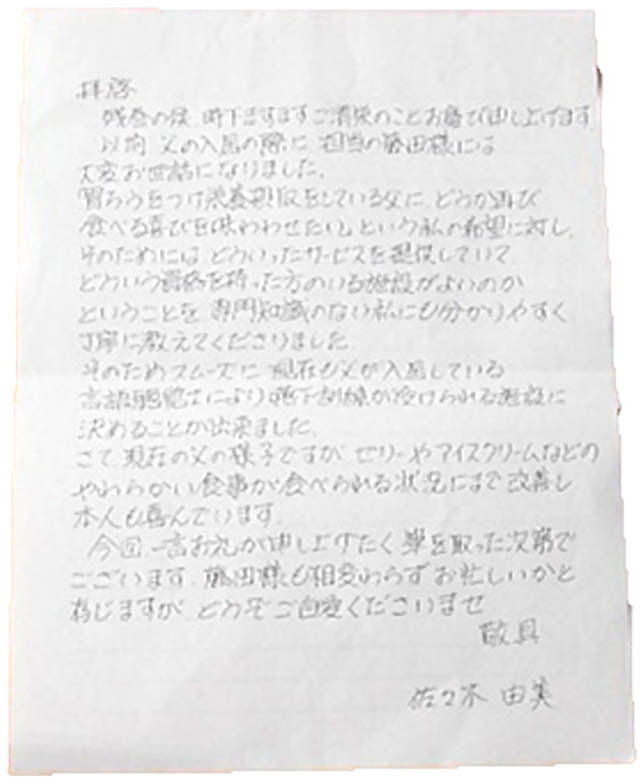 拝啓
残春の候、時下ますますご清栄のことお喜び申し上げます
以前 父の入居の際に 担当の藤田様には
大変お世話になりました。
胃ろうをつけ栄養摂取をしている父に、どうか再び
食べる喜びを味わわせたい。という私の希望に対し、
そのためには どういったサービスを提供していて
どういう資格を持った方のいる施設がよいのか
ということを 専門知識のない私にも分かりやすく
丁寧に教えてくださりました。
そのためスムーズに 現在も父が入居している
言語聴覚士により嚥下訓練が受けられる施設に
決めることが出来ました。
さて、現在の父の様子ですが ゼリーやアイスクリームなどの
やわらかい食事が食べられる状況にまで改善し
本人も喜んでいます。
今回、一言お礼が申し上げたく 筆を取った次第で
ございます。藤田様も相変わらずお忙しいかと
存じますが、どうぞご自愛くださいませ
敬具
佐々木 由美